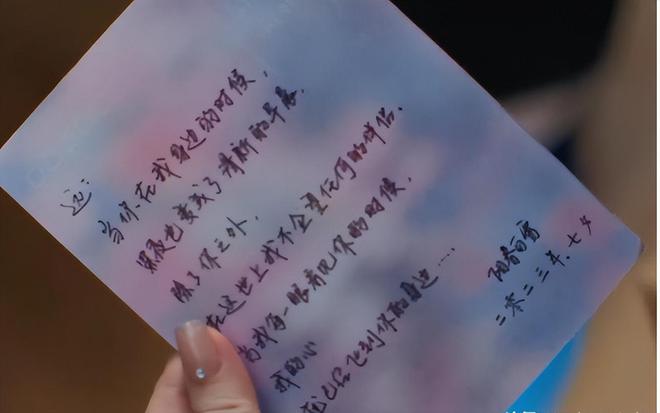 远：
当你在我身边的时候，
黑夜也变成了清新的早晨。
除了你之外，
在这世上我不企望任何的伴侣。
当我第一眼看见你的时候，
我的心
就已经飞到你的身边...
阳春白雪
二零二三年.七夕